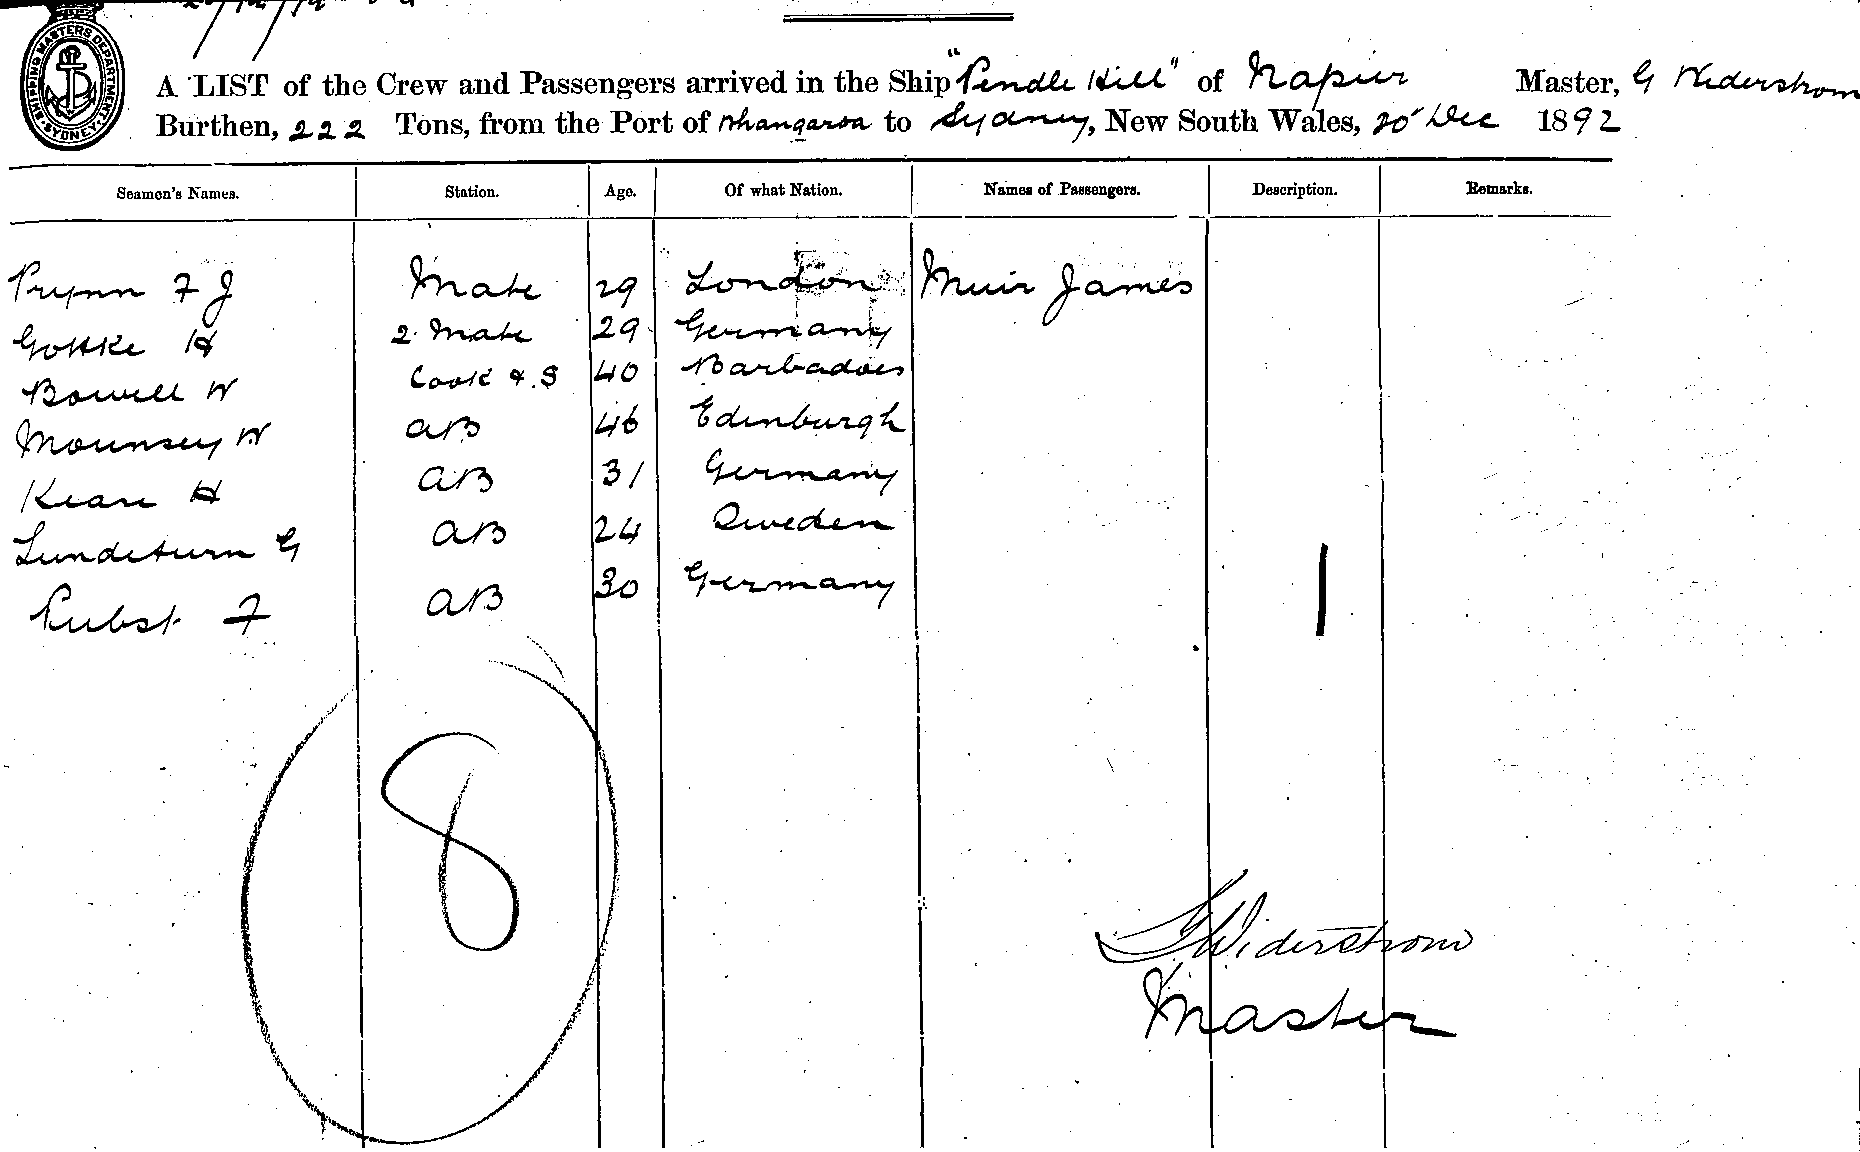 SHIPPING MASTERS DEPARTMENT SYDNEY
A LIST of the Crew and Passengers arrived in the Ship "Pendle Hill" of Napier Master, G Wederstrom
Burthen, 222 Tons, from the Port of Whangaroa to Sydney, New South Wales, 20 Dec 1892
Seamen's Names. Station. Age. Of what Nation. Names of Passengers. Description. Remarks.
Prynn F J Mate 29 London Muir James
Gottke H 2. Mate 29 Germany
Bowell W Cook & S 40 Barbadoes
Mounsey W AB 46 Edinburgh
Kean H AB 31 Germany
G AB 24 Sweden
Pubst F AB 30 Germany
1
8
G Widerstrom
Master